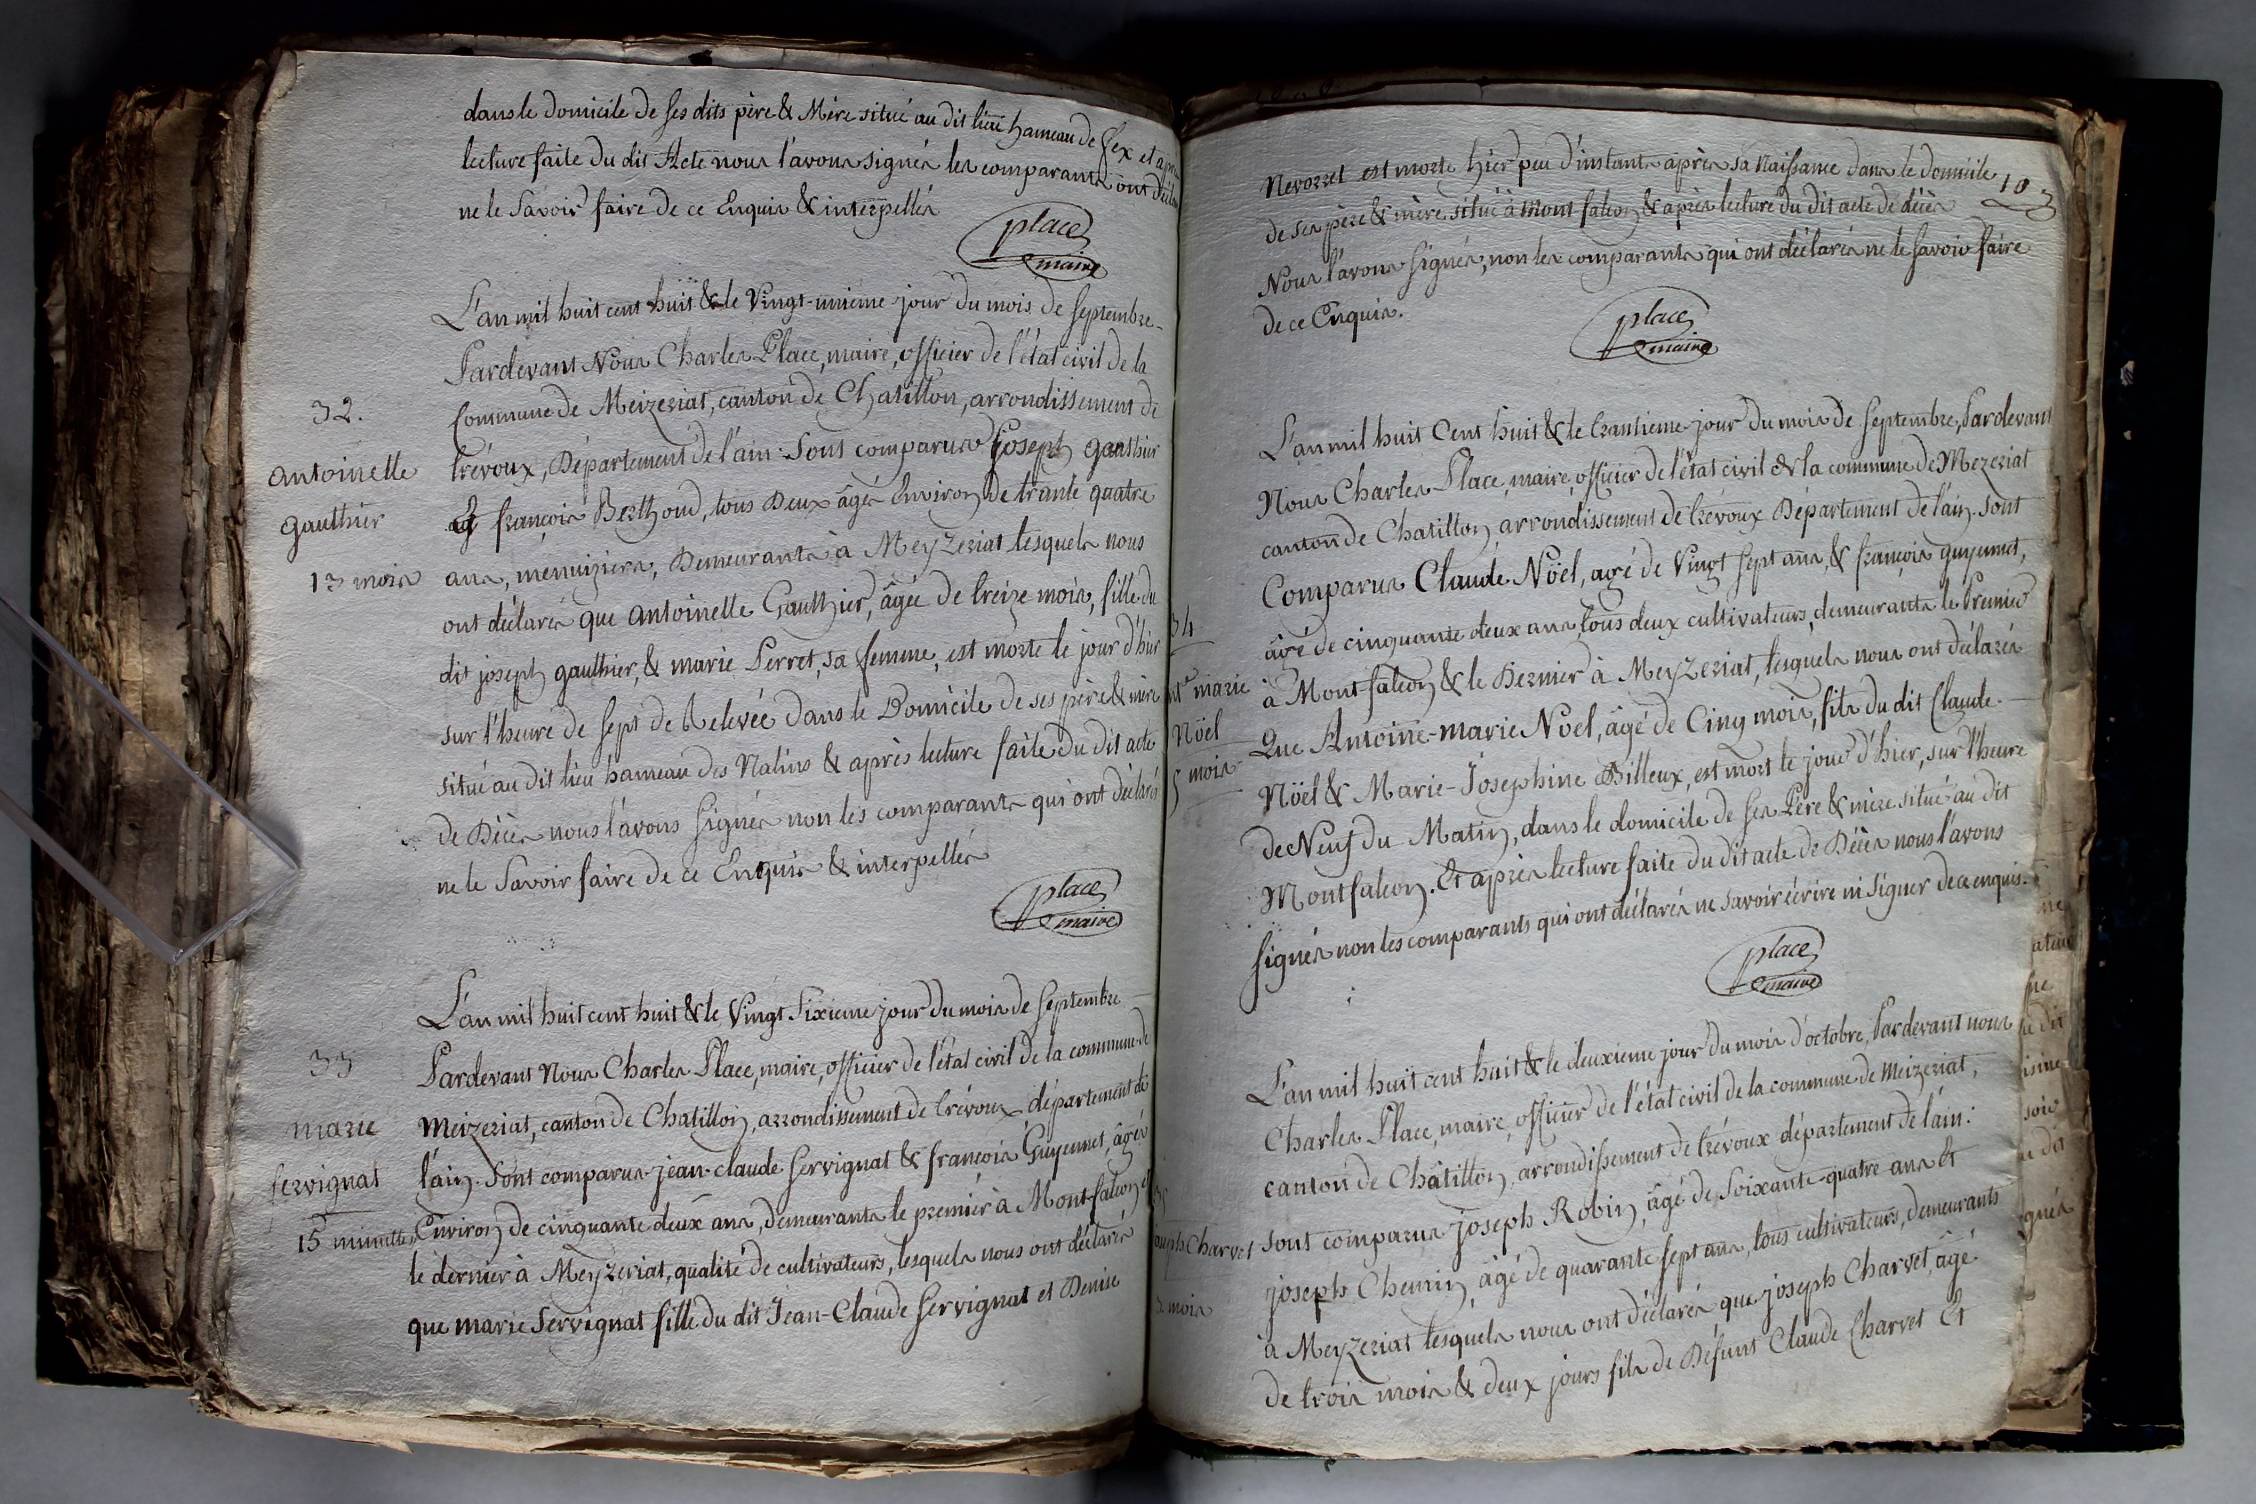 dans le domicile de ses dits père & Mère situé au dit lieu hameau de et après
lecture faite du dit Acte nous l'avons signés les comparants ont déclaré
ne le Savoir faire de ce Enquis & interpellés
place
maire
L'an mil huit cent huit & le Vingt-unieme jour du mois de septembre
Pardevant Nous Charles Place, maire, officier de l'état civil de la
32.
Commune de Meizeriat, canton de Chatillon, arrondissement de
Antoinette
trévoux, Département de l'ain : Sont comparus joseph gauthier
gauthier
& françois Berthoud, tous Deux âgés Environ de trante quatre
13 mois
ans, menuiziers, Demeurants à Meyzeriat lesquels nous
ont déclarés que antoinette Gauthier, âgée de treize mois, fille du
dit joseph gauthier, & marie Perret, sa femme, est morte le jour d'hier
sur l'heure de sept de Relevée dans le Domicile de ses père & mère
situé au dit lieu hameau des Nalins & après lecture faite du dit acte
de Décès nous l'avons signés non les comparants qui ont déclarés
ne le Savoir faire de ce Enquis & interpellés
place
maire
L'an mil huit cent huit & le Vingt Sixieme jour du mois de Septembre
33
Pardevant Nous Charles Place, maire, officier de l'état civil de la commune de
marie
Meizeriat, canton de Chatillon, arrondissement de trévoux département de
servignat
l'ain. Sont comparus jean-claude Servignat & françois Guyennet, âgés
15 minuttes
Environ de cinquante deux ans, demeurants le premier à Montfalcon &
le dernier à Meyzeriat, qualité de cultivateurs, lesquels nous ont déclarés
que marie Servignat fille du dit Jean-Claude Servignat et Denise
103
Nevorret est morte hier peu d'instants après sa Naissance dans le domicile
de ses père & mère situé à Montfalcon & après lecture du dit acte de décès
Nous l'avons signés, non les comparants qui ont déclarés ne le savoir faire
de ce Enquis.
place
maire
L'an mil huit Cent huit & le trantieme jour du mois de Septembre, Pardevant
Nous Charles Place, maire, officier de l'état civil de la commune de Mezeriat
canton de Chatillon, arrondissement de trévoux Département de l'ain. Sont
Comparus Claude Nöel, agé de Vingt sept ans, & françois guyennet,
34
âgé de cinquante deux ans, tous deux cultivateurs, demeurants le Premier
nte marie
à Montfalcon & le Dernier à Meyzeriat, lesquels nous ont déclarés
Nöel
Que Antoine-marie Nöel, âgé de Cinq mois, fils du dit Claude
5 mois
Nöel & Marie-Josephine Billeux, est mort le jour d'hier, sur l'heure
de Neuf du Matin, dans le domicile de ses Père & mère situé au dit
Montfalcon. Et après lecture faite du dit acte de Décès nous l'avons
signés non les comparants qui ont déclarés ne savoir écrire ni signer de ce enquis.
place
maire
L'an mil huit cent huit & le deuxieme jour du mois d'octobre, Pardevant nous
Charles Place, maire, officier de l'état civil de la commune de Meizeriat,
canton de Châtillon, arrondissement de trévoux département de l'ain :
35
sont comparus joseph Robin, âgé de Soixante-quatre ans et
joseph Charvet
joseph Chemin, âgé de quarante sept ans, tous cultivateurs, demeurants
3 mois
à Meyzeriat lesquels nous ont déclarés que joseph Charvet, âgé
de trois mois & deux jours fils de Défunt Claude Charvet Et